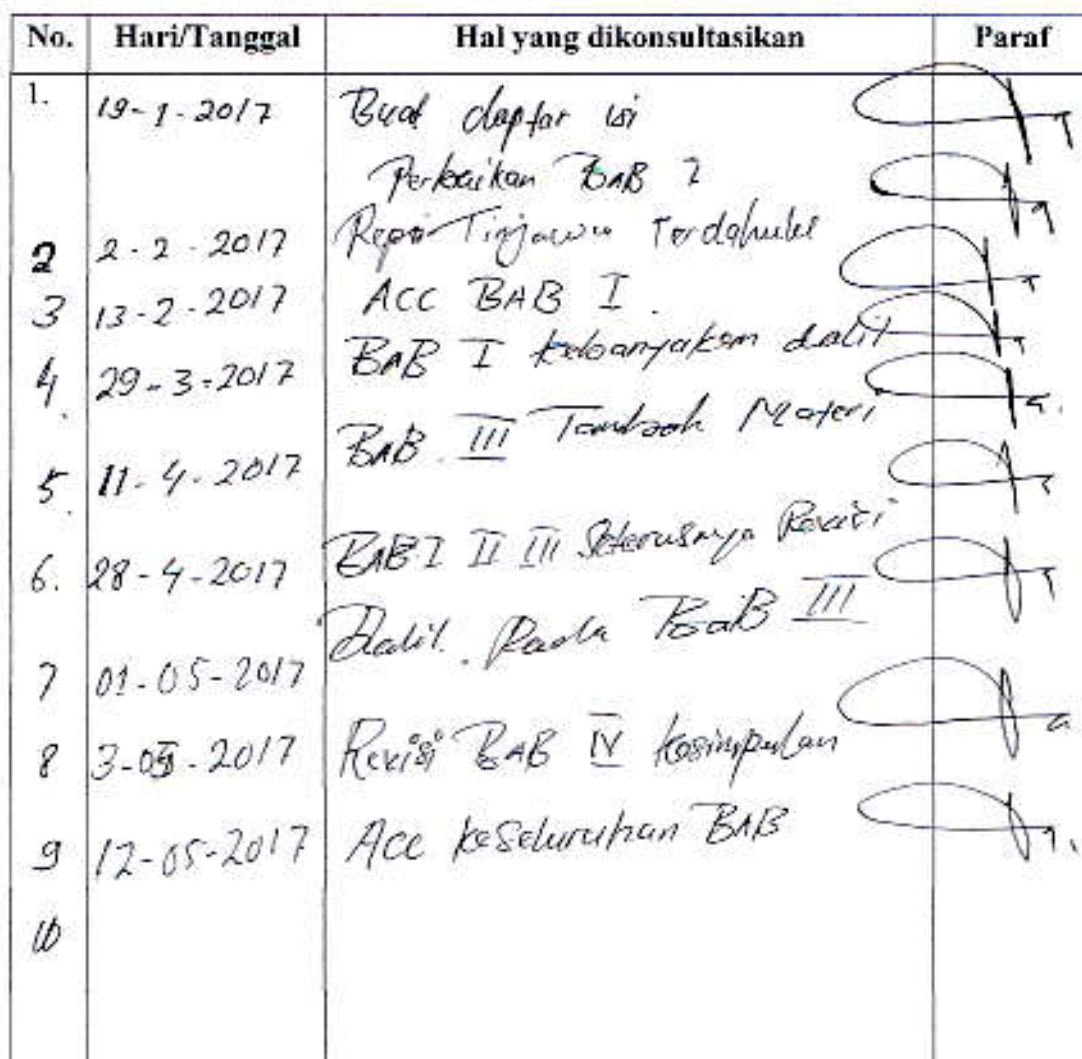 No. Hari/Tanggal Hal yang dikonsultasikan Paraf
1. 19-1-2017 Buat daptar isi
Perbaikan BAB I
2 2-2-2017 Tinjauan Terdahulu
3 13-2-2017 ACC BAB I.
4. 29-3-2017 BAB I kebanyakan dalil
5. 11-4-2017 BAB. III Tambah Materi
6. 28-4-2017 BAB I II III Seterusnya Revisi
7 01-05-2017 Dalil. Pada BaB III
8 3-05-2017 Revisi BAB IV kesimpulan
9 12-05-2017 Acc keseluruhan BAB
10